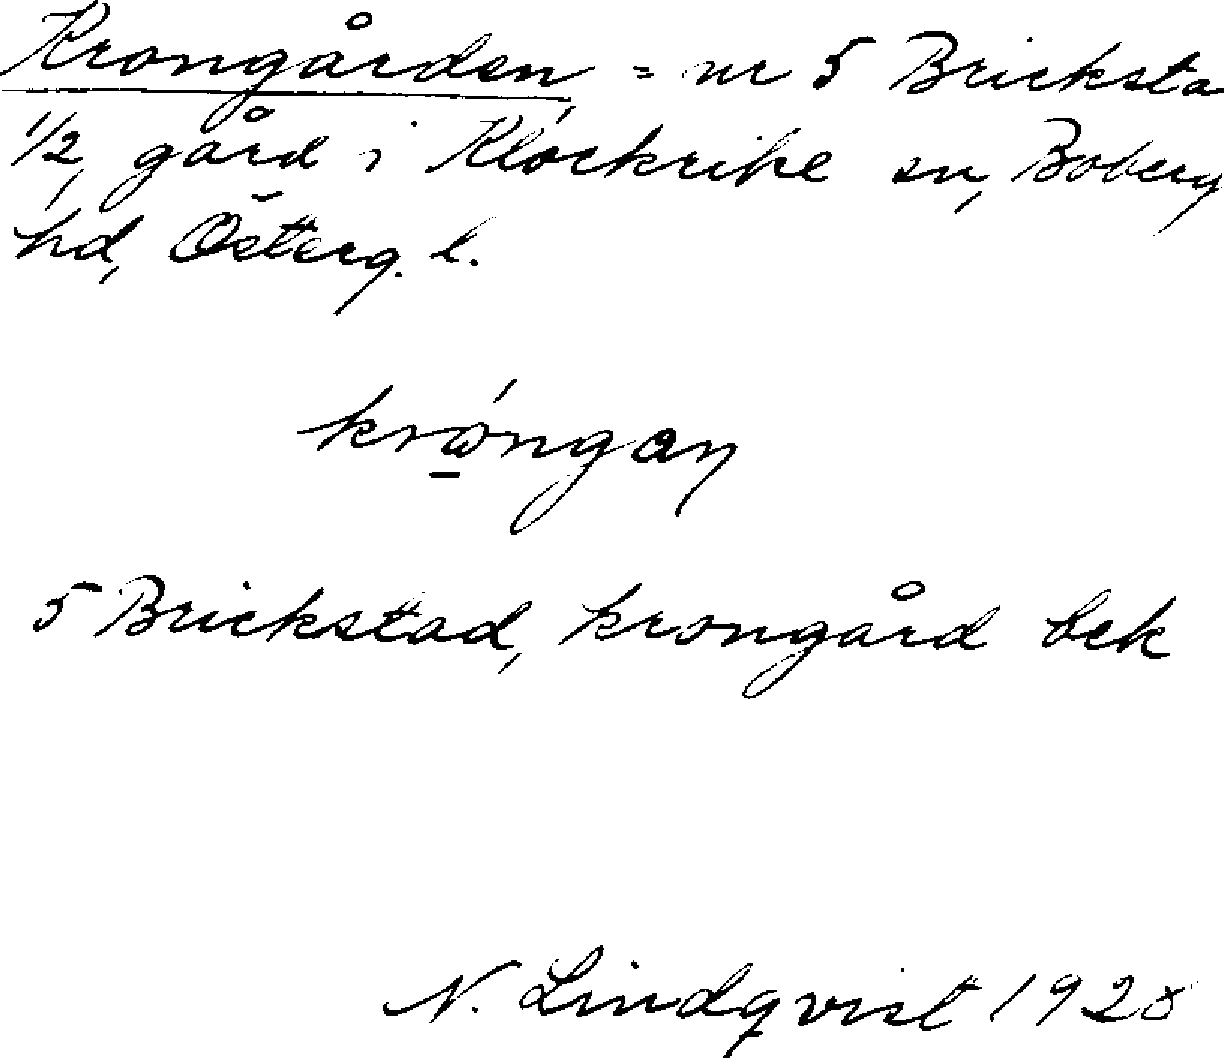 Krongården, = nr 5 Bricksta
1/2 gård i Klockrike sn, Boberg
hd, Österg. l.
krǿngan
5 Brickstad, krongård bek
N. Lindqvist 1928